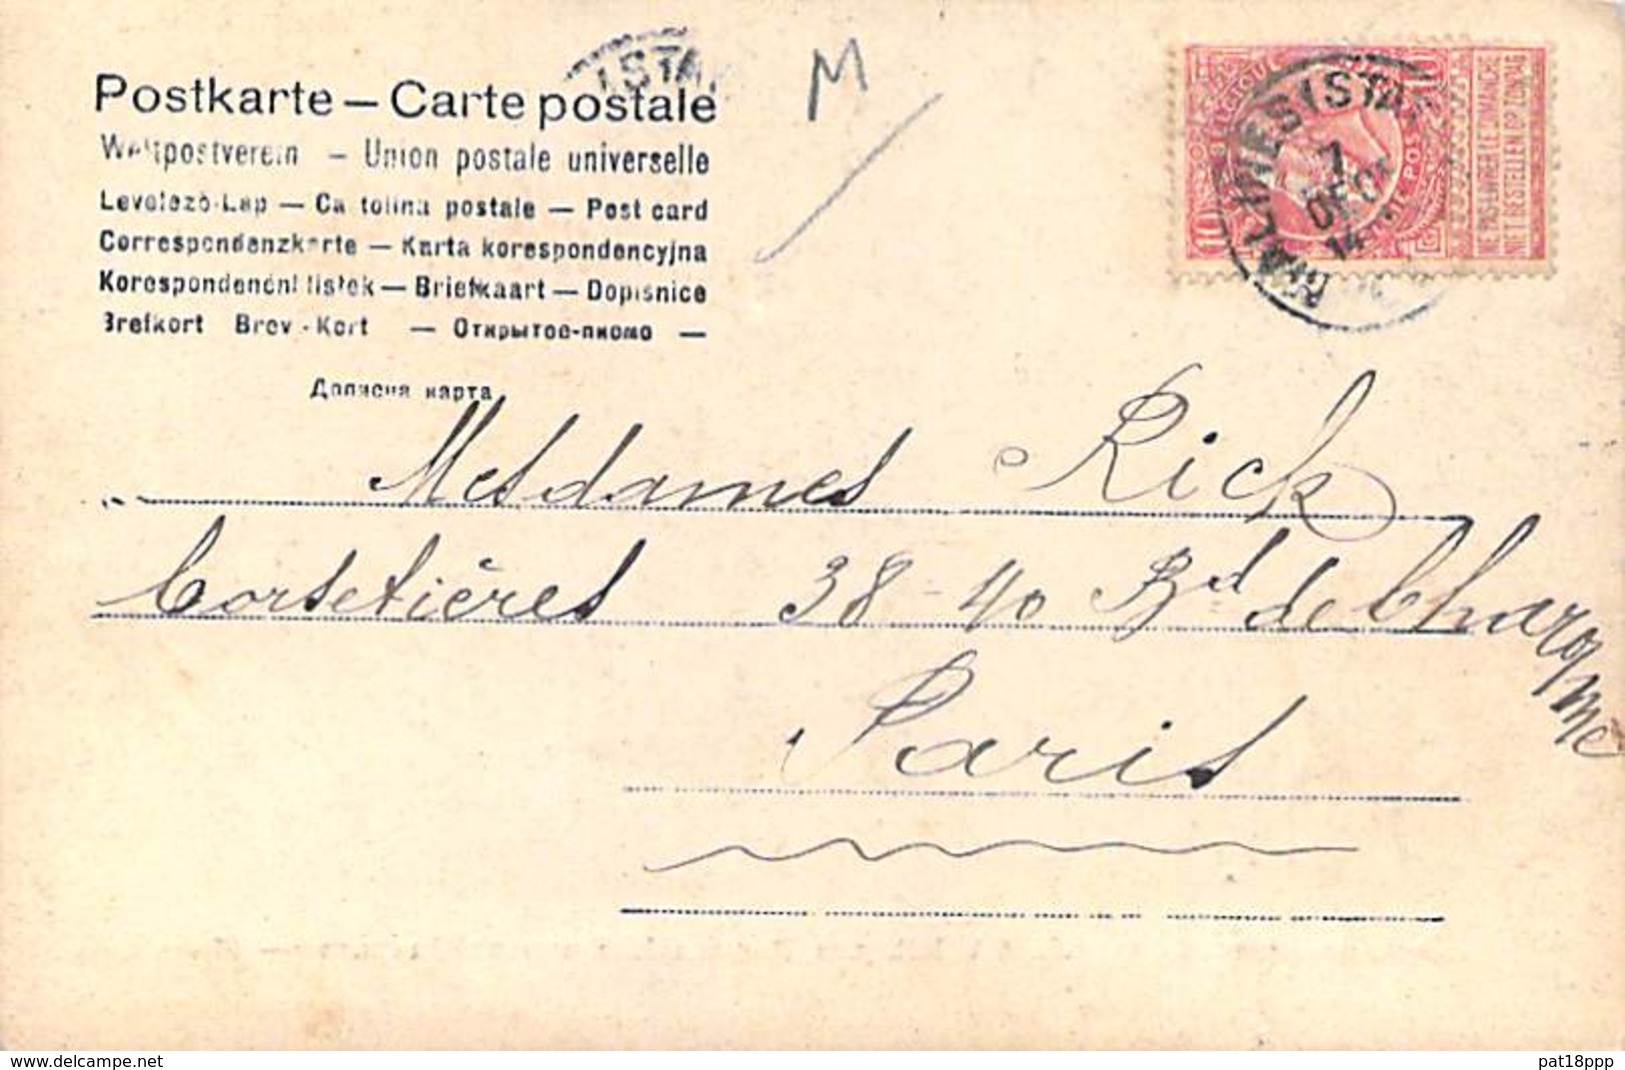 (STA
M
Postkarte – Carte postale
Weltpostverein – Union postale universelle
Levelezö-Lap – Ca tolina postale – Post card
Correspondenzkarte – Karta korespondencyjna
Korespondenční lístek – Briefkaart – Dopisnice
Brefkort Brev-Kort – Открытое-письмо –
Дописна карта
10 BELGIQUE 10
NE PAS LIVRER LE DIMANCHE
NIET BESTELLEN OP ZONDAG
MALINES (STA
7
DEC
14
Mesdames Rick
Corsetières 38-40 Bd de Charonne
Paris
www.delcampe.net
pat18ppp